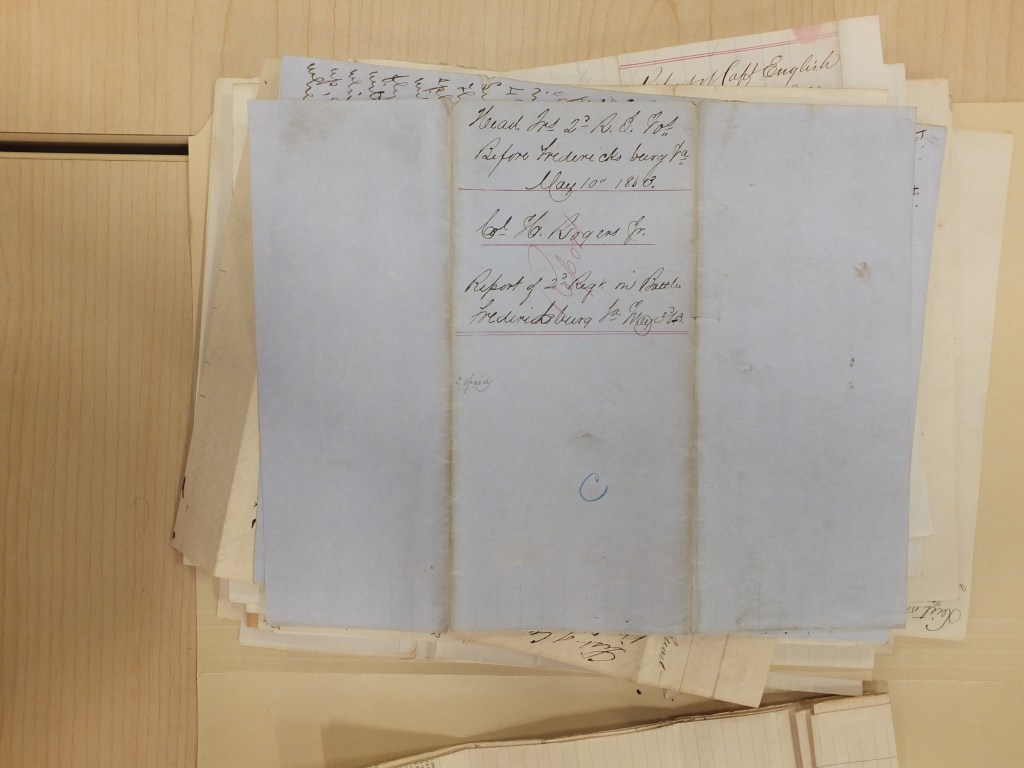 Capt English
Head Qrs 2d R. I. Vols
Before Fredericksburg Va
May 10" 1863.
Col. H. Rogers Jr.
Report of 2d Regt. in Battle
Fredericksburg Va May 3d 63.
Copied
C